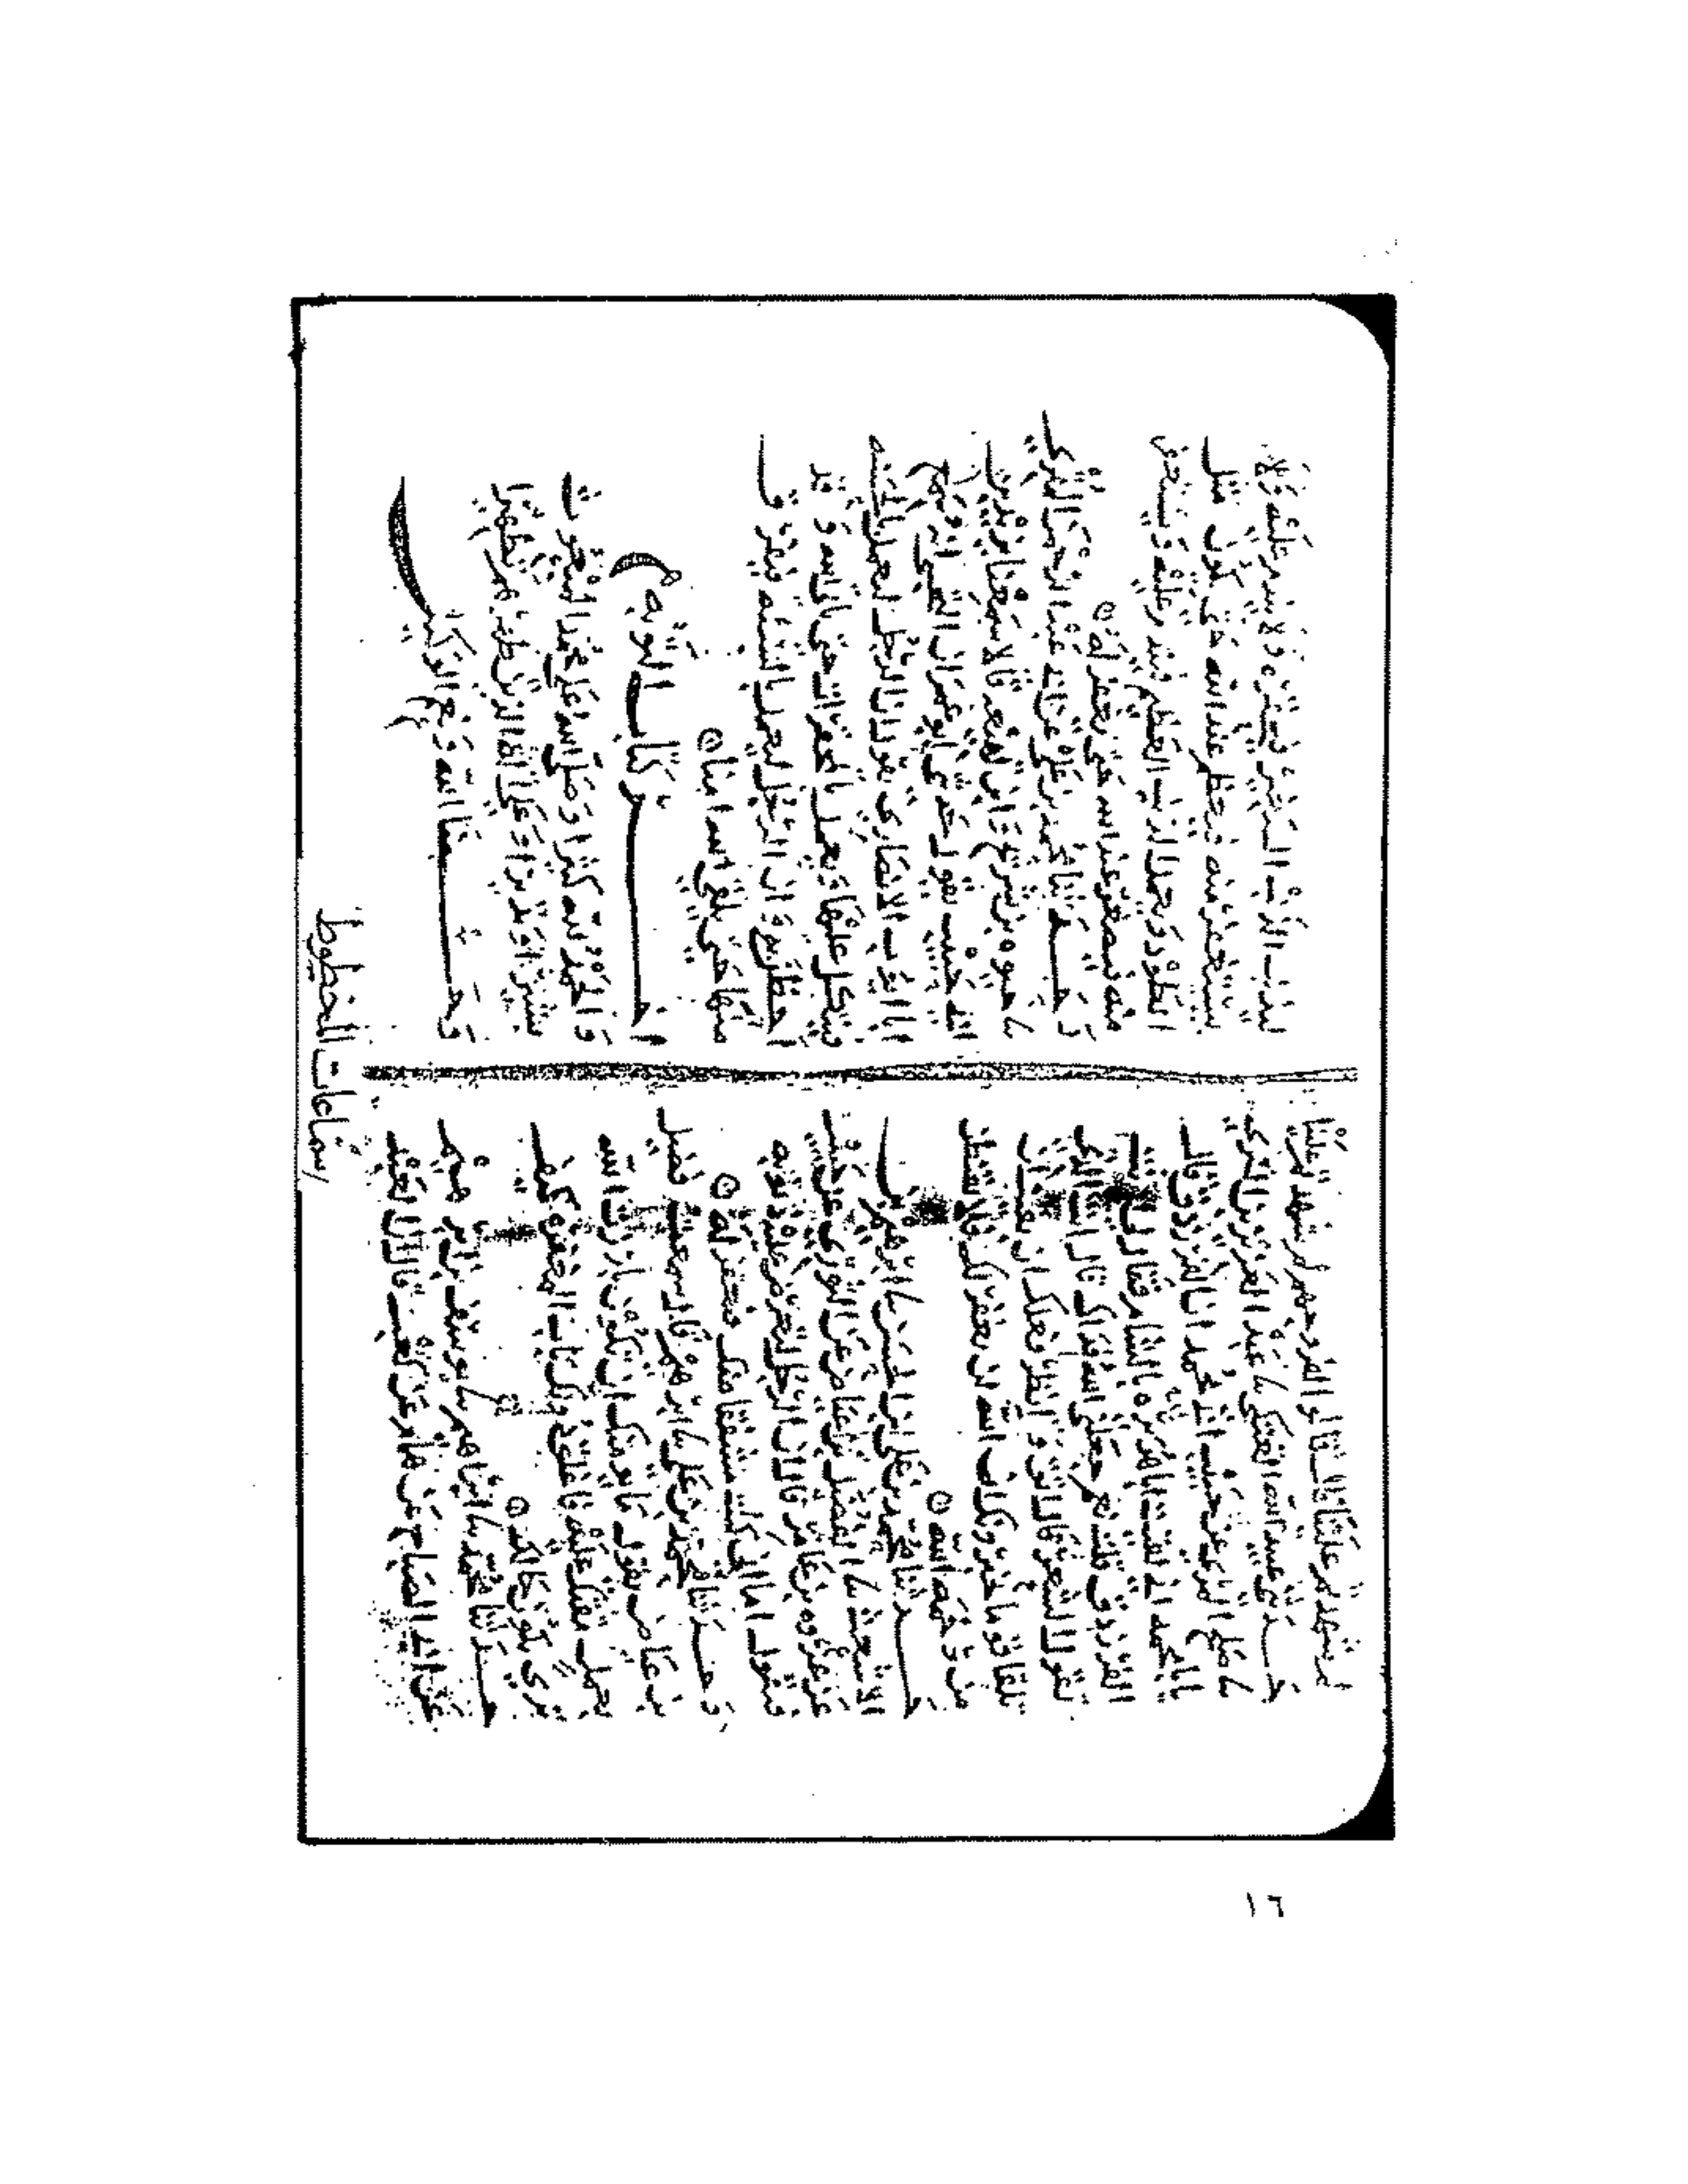 سماعات المخطوط
لم يشهد ثم علينا لم يشهد علينا
حدثني عبيد الله العتكي نا عبد العزيز بن السري
نا صالح المري عن حبيب ابي محمد انا الفرزدق قال
يابا محمد اني لقيت ابا هريره بالشام فقال لي انت
الفرزدق قلت نعم جعلني الله فداك قال انت الذي
تقول الشعر قال اتق وانظر فلعلك ان بقيت ان
تلقا قوما يخبرونك ان الله لن يغفر لك فلا تقنطن
من رحمة الله
حدثنا محمد بن علي بن الحسن نا ابرهيم بن
الاشعث نا الفضيل بن عياض عن الثوري عن
عن عروه بن عامر قال ان الرجل لتعرض عليه ذنوبه
فيقول اما اني كنت مشفقا منك فيغفر له
وحدثنا محمد بن علي نا ابرهيم قال سمعت فضيل
بن عياض يقول ما يؤمنك ان تكون بارزت الله
بعمل مقتك عليه فاغلق دونك باب المغفره كيف
ترى تكون حالك
حدثنا محمد نا ابراهيم نا يوسف بن ابرهيم
عن ابي الصباح عن همام عن كعب قال ان العبد
ليذنب الذنب الصغير فيحقره ولا يندم عليه ولا
يستغفر منه فيعظم عند الله حتى يكون مثل
الطود ويعمل الذنب العظيم فيندم عليه ويستغفر
منه فيصغر عند الله حتى يغفر له
وحدثنا محمد بن علي عن ابي عبد الرحمن المقري
نا حيوه بن شريح وابن لهيعه قالا سمعنا يزيد بن
ابي حبيب يقول حدثني ابو عمران التجيبي انه سمع
ابا ايوب الانصاري يقول ان الرجل ليعمل الحسنه
فيتكل عليها ويعمل المحقرات حتى ياتي الله وقد
وان الرجل ليعمل السيئه فيفرق
منها حتى يلقى الله امنا
اخر كتاب التوبه
والحمد لله كثيرا وصلى الله على محمد المبعوث
بشيرا ونذيرا وعلى اله الذين طهرهم تطهيرا
وحسبنا الله ونعم الوكيل
١٦